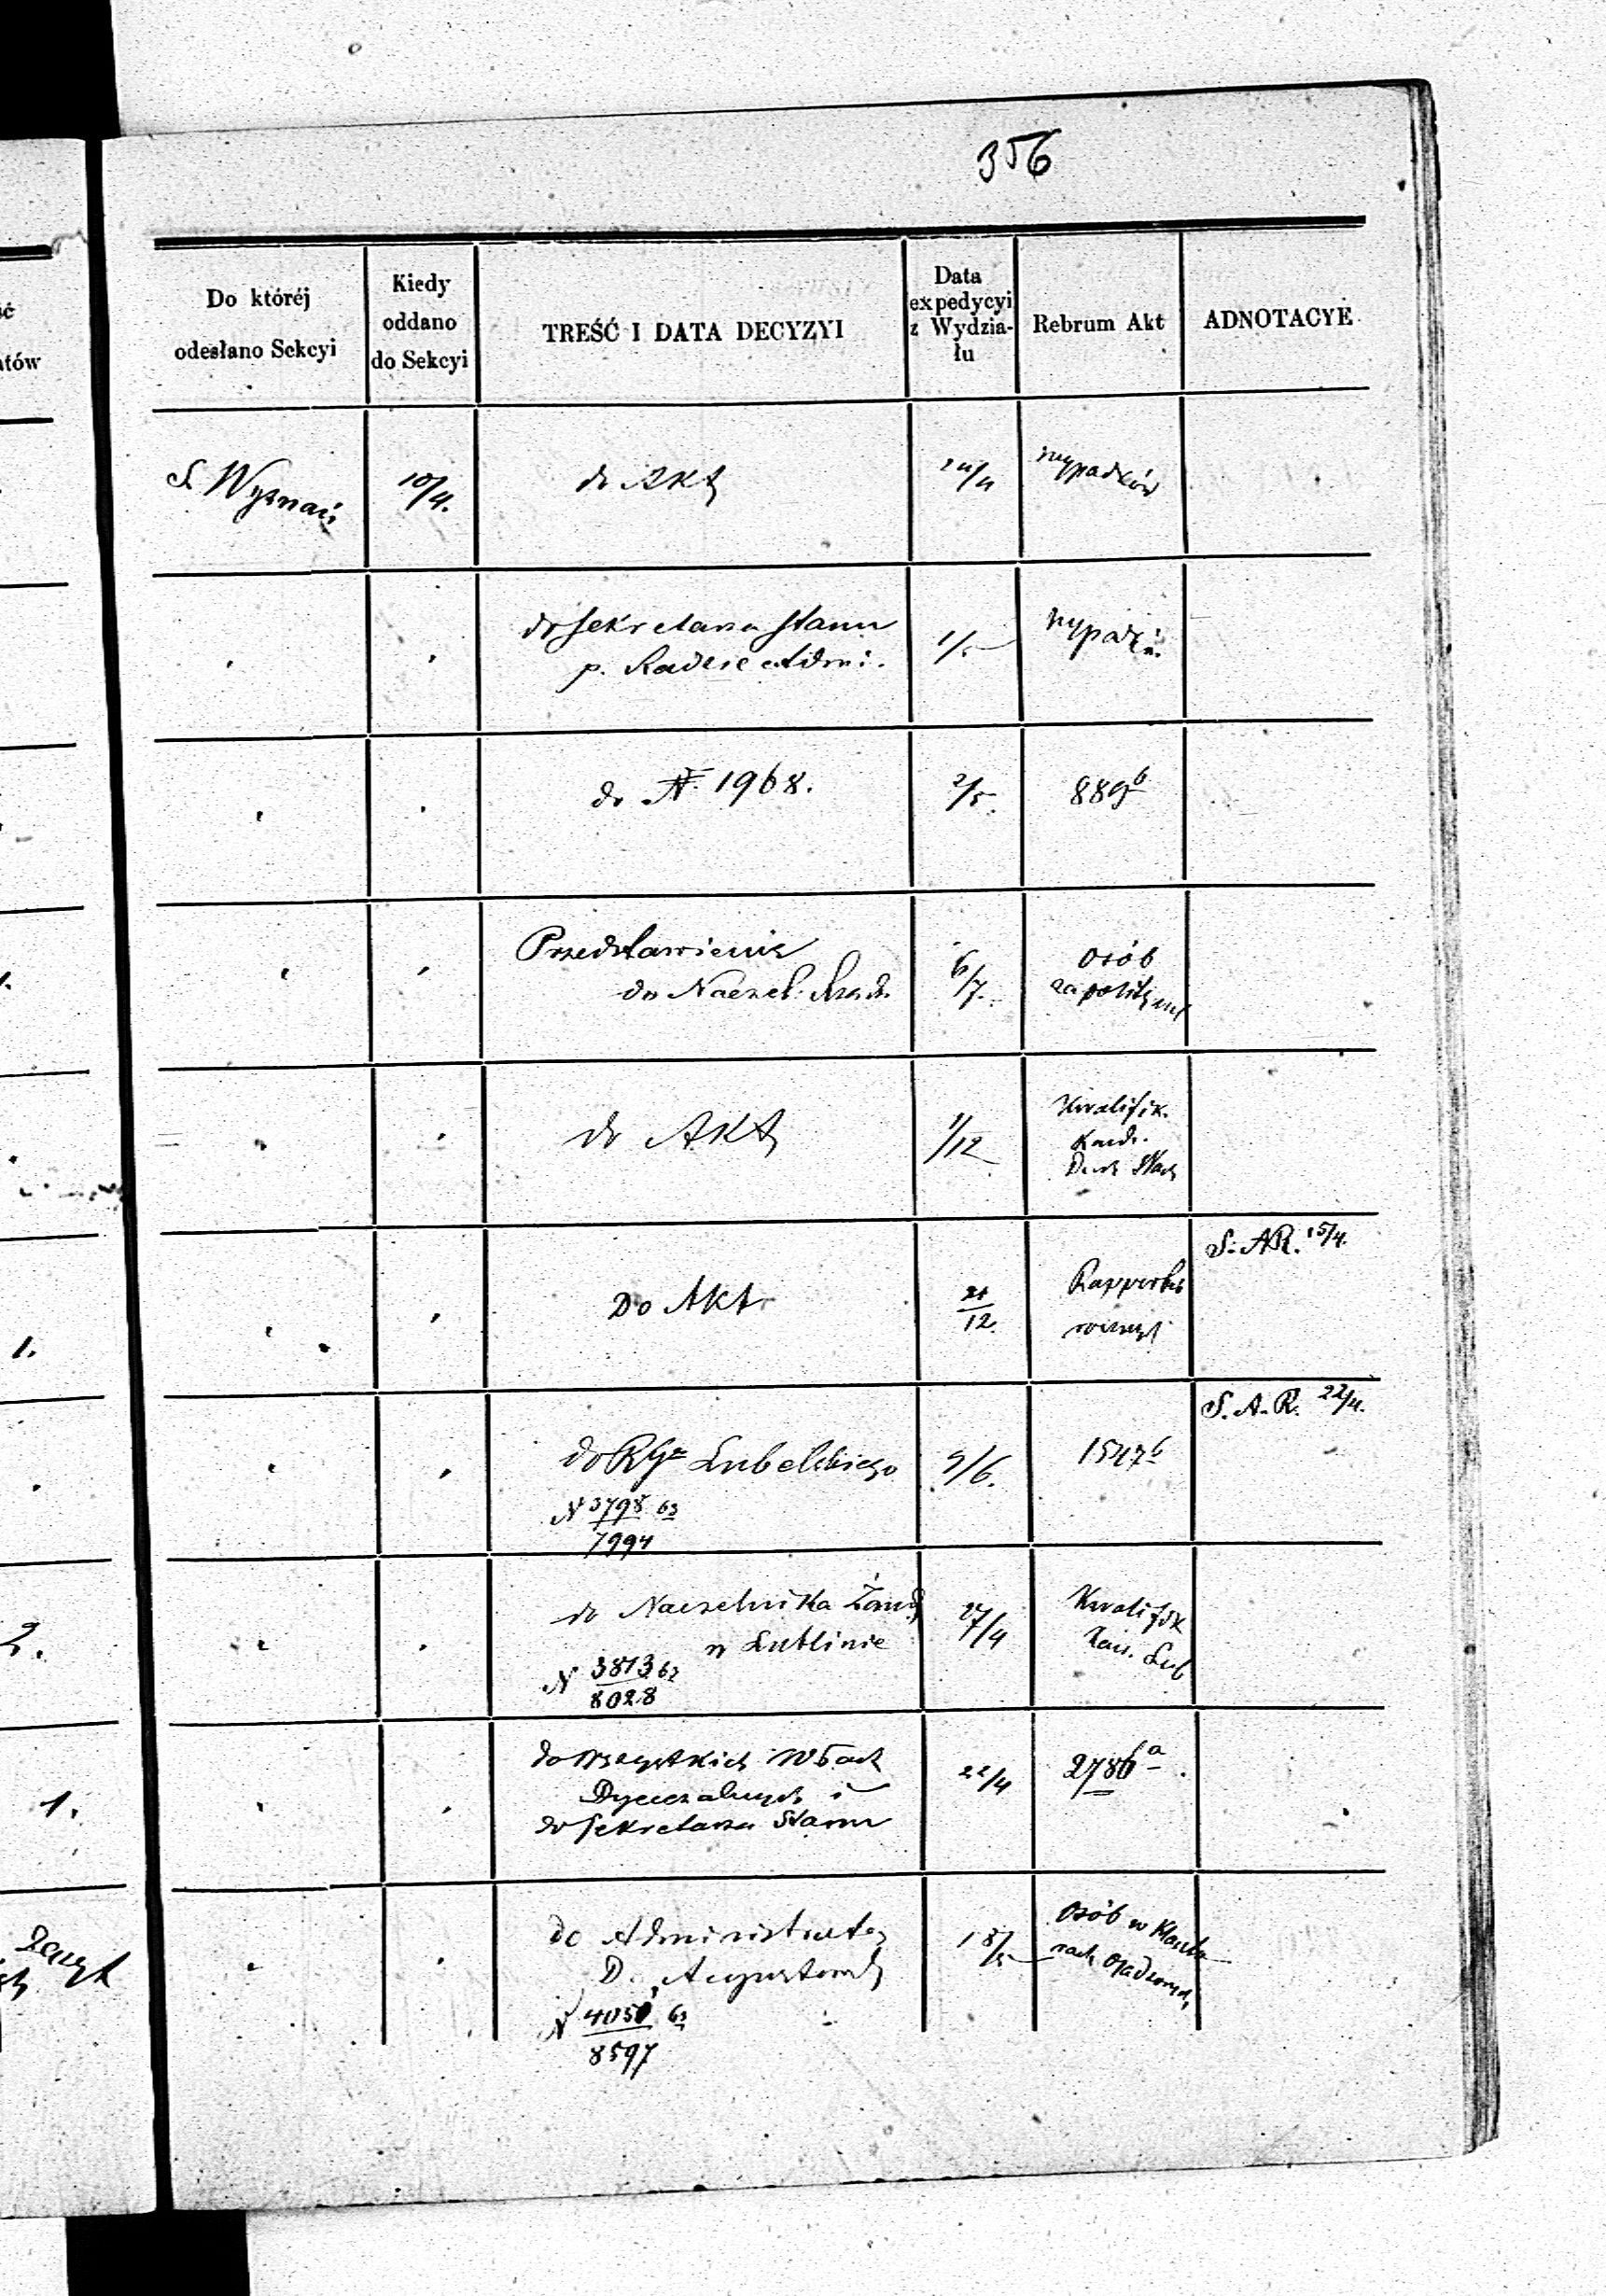 356
Do któréj
odesłano Sekcyi
Kiedy
oddano
do Sekcyi
TREŚĆ I DATA DECYZYI
Data
expedycyi
z Wydzia-
łu
Rebrum Akt
ADNOTACYE
S. Wyznań
10/4.
do Akt
24/4
wypadków
do Sekretarza Stanu
p. Radzie Admi.
1/5
wypadk:
do N 1968.
2/5.
889b
Przedstawienie
do Naczel. Rząd.
6/7.
Osób
za polit
do Akt
1/12
Kwalifik.
Duch
S. AR. 15/4.
Do Akt
21/12.
Rapportów
S. A. R. 22/4.
do RGo Lubelskiego
N 3798 63
7994
9/6.
1547b
do Naczelnika Żand
w Lublinie
N 3873 63
8028
27/4
Kwalifik
Lub
do wszystkich Władz
Dyecezalnych i
do Sekretarza Stanu
22/4
2786a.
do Administrato
D. Augustows
N 4050 63
8597
18/5
Osób w Klaszto
rach osadzonych
1.
1.
2.
1.